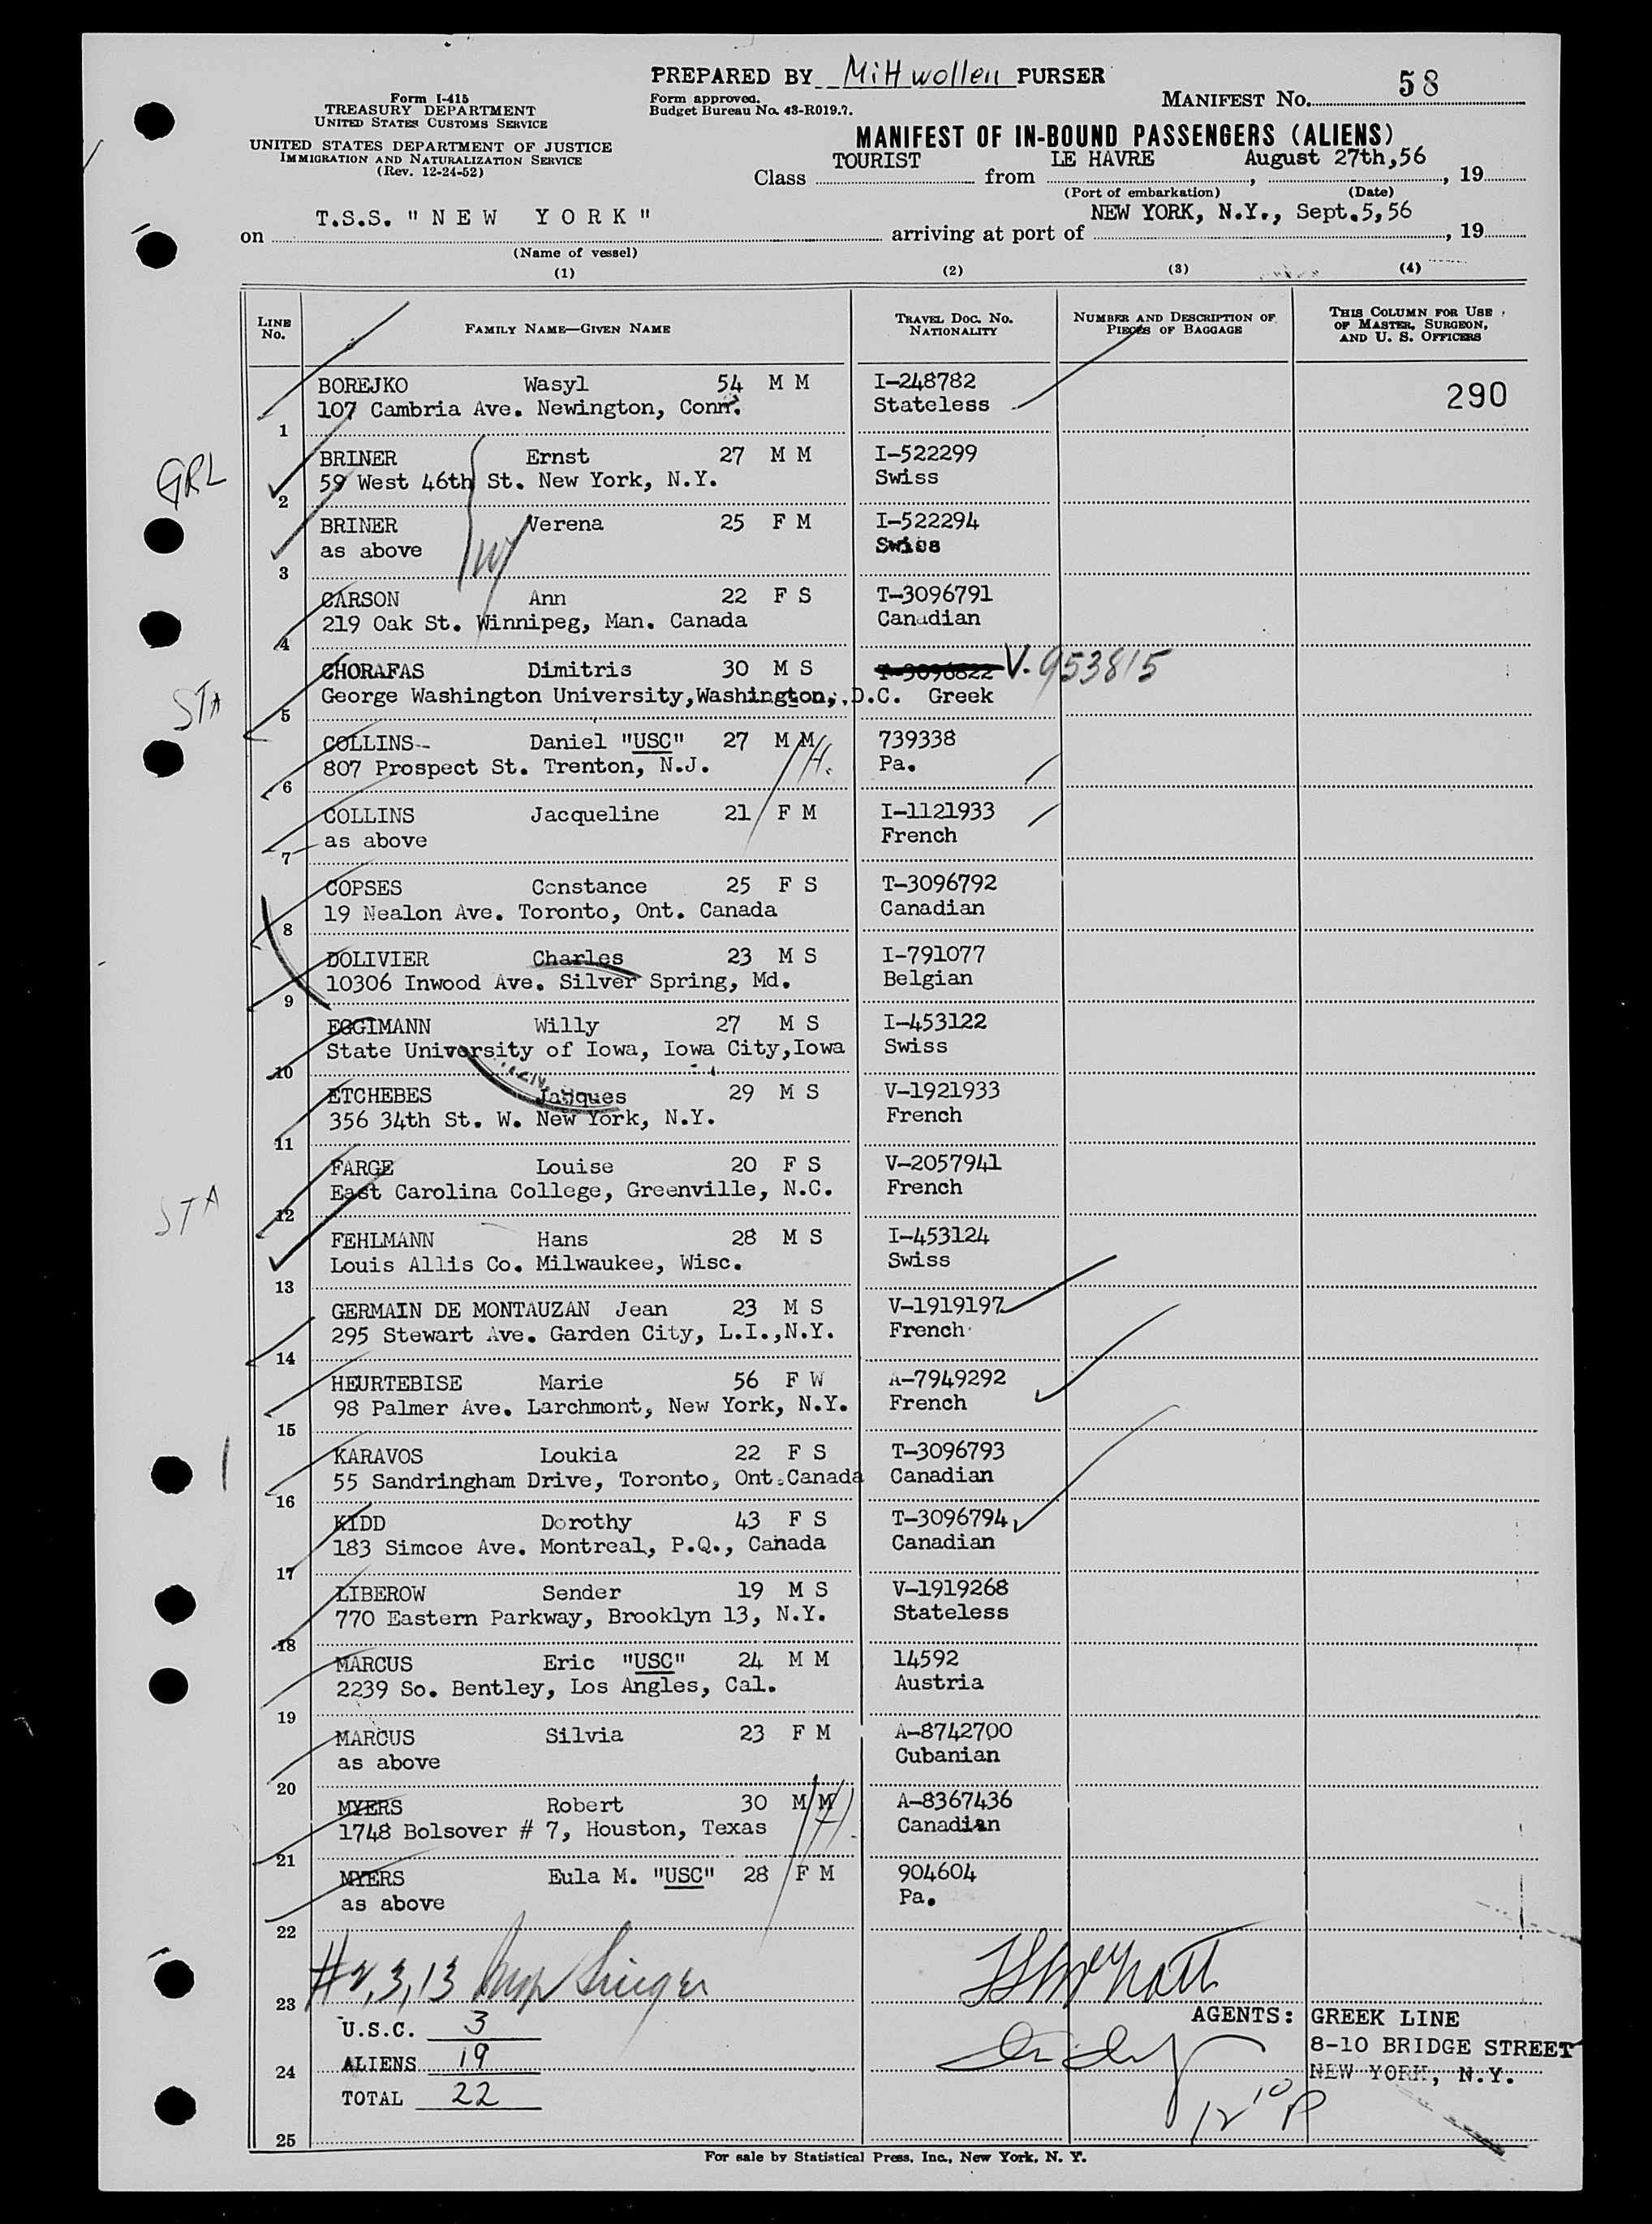 PREPARED BY Mittwollen PURSER
58
Form I-415
TREASURY DEPARTMENT
UNITED STATES CUSTOMS SERVICE
Form approved.
Budget Bureau No. 43-R019.7.
MANIFEST No.
UNITED STATES DEPARTMENT OF JUSTICE
IMMIGRATION AND NATURALIZATION SERVICE
(Rev. 12-24-52)
MANIFEST OF IN-BOUND PASSENGERS (ALIENS)
Class TOURIST from LE HAVRE, August 27th,56, 19
(Port of embarkation) (Date)
on T.S.S. "NEW YORK" arriving at port of NEW YORK, N.Y., Sept.5,56, 19
(Name of vessel)
(1) (2) (3) (4)
LINE No. FAMILY NAME—GIVEN NAME TRAVEL DOC. NO. NATIONALITY NUMBER AND DESCRIPTION OF PIECES OF BAGGAGE THIS COLUMN FOR USE OF MASTER, SURGEON, AND U. S. OFFICERS
BOREJKO Wasyl 54 M M I-248782
107 Cambria Ave. Newington, Conn. Stateless
290
1
BRINER Ernst 27 M M I-522299
GRL
59 West 46th St. New York, N.Y. Swiss
2
BRINER Verena 25 F M I-522294
as above Swiss
3
CARSON Ann 22 F S T-3096791
219 Oak St. Winnipeg, Man. Canada Canadian
4
CHORAFAS Dimitris 30 M S T-3096822 V-953815
George Washington University,Washington, D.C. Greek
STA
5
COLLINS Daniel "USC" 27 M M 739338
807 Prospect St. Trenton, N.J. Pa.
6
COLLINS Jacqueline 21 F M I-1121933
as above French
7
COPSES Constance 25 F S T-3096792
19 Nealon Ave. Toronto, Ont. Canada Canadian
8
DOLIVIER Charles 23 M S I-791077
10306 Inwood Ave. Silver Spring, Md. Belgian
9
EGGIMANN Willy 27 M S I-453122
State University of Iowa, Iowa City,Iowa Swiss
10
ETCHEBES Jacques 29 M S V-1921933
356 34th St. W. New York, N.Y. French
11
FARGE Louise 20 F S V-2057941
East Carolina College, Greenville, N.C. French
STA
12
FEHLMANN Hans 28 M S I-453124
Louis Allis Co. Milwaukee, Wisc. Swiss
13
GERMAIN DE MONTAUZAN Jean 23 M S V-1919197
295 Stewart Ave. Garden City, L.I.,N.Y. French
14
HEURTEBISE Marie 56 F W A-7949292
98 Palmer Ave. Larchmont, New York, N.Y. French
15
KARAVOS Loukia 22 F S T-3096793
55 Sandringham Drive, Toronto, Ont.Canada Canadian
16
KIDD Dorothy 43 F S T-3096794
183 Simcoe Ave. Montreal, P.Q., Canada Canadian
17
LIBEROW Sender 19 M S V-1919268
770 Eastern Parkway, Brooklyn 13, N.Y. Stateless
18
MARCUS Eric "USC" 24 M M 14592
2239 So. Bentley, Los Angles, Cal. Austria
19
MARCUS Silvia 23 F M A-8742700
as above Cubanian
20
MYERS Robert 30 M M A-8367436
1748 Bolsover # 7, Houston, Texas Canadian
21
MYERS Eula M. "USC" 28 F M 904604
as above Pa.
22
#2,3,13 Singer
23
U.S.C. 3
AGENTS: GREEK LINE
8-10 BRIDGE STREET
NEW YORK, N.Y.
ALIENS 19
24
TOTAL 22
12 10 P
25
For sale by Statistical Press, Inc., New York, N. Y.